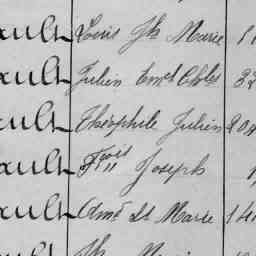 ault Louis Jh Marie 1
ault Julien Emel Chles 32
ault Théophile Julien 20
ault Frois Joseph
ault Amé Lt Marie 14